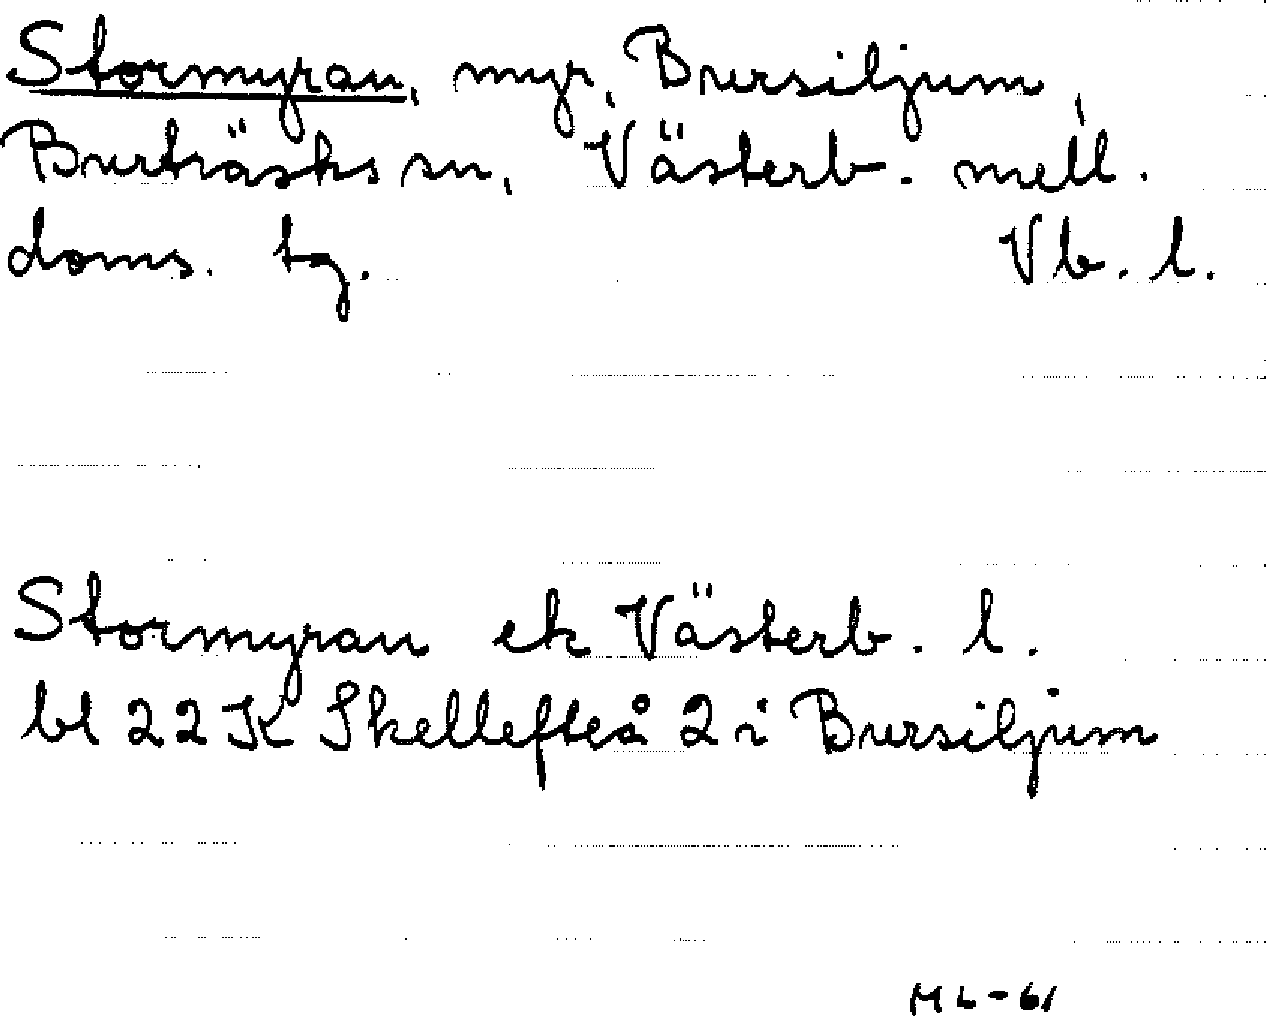 Stormyran, myr, Bursiljum,
Burträsks sn, Västerb. mell.
doms. tg. Vb. l.
Stormyran ek Västerb. l.
bl 22K Skellefteå 2 i Bursiljum
ML-61